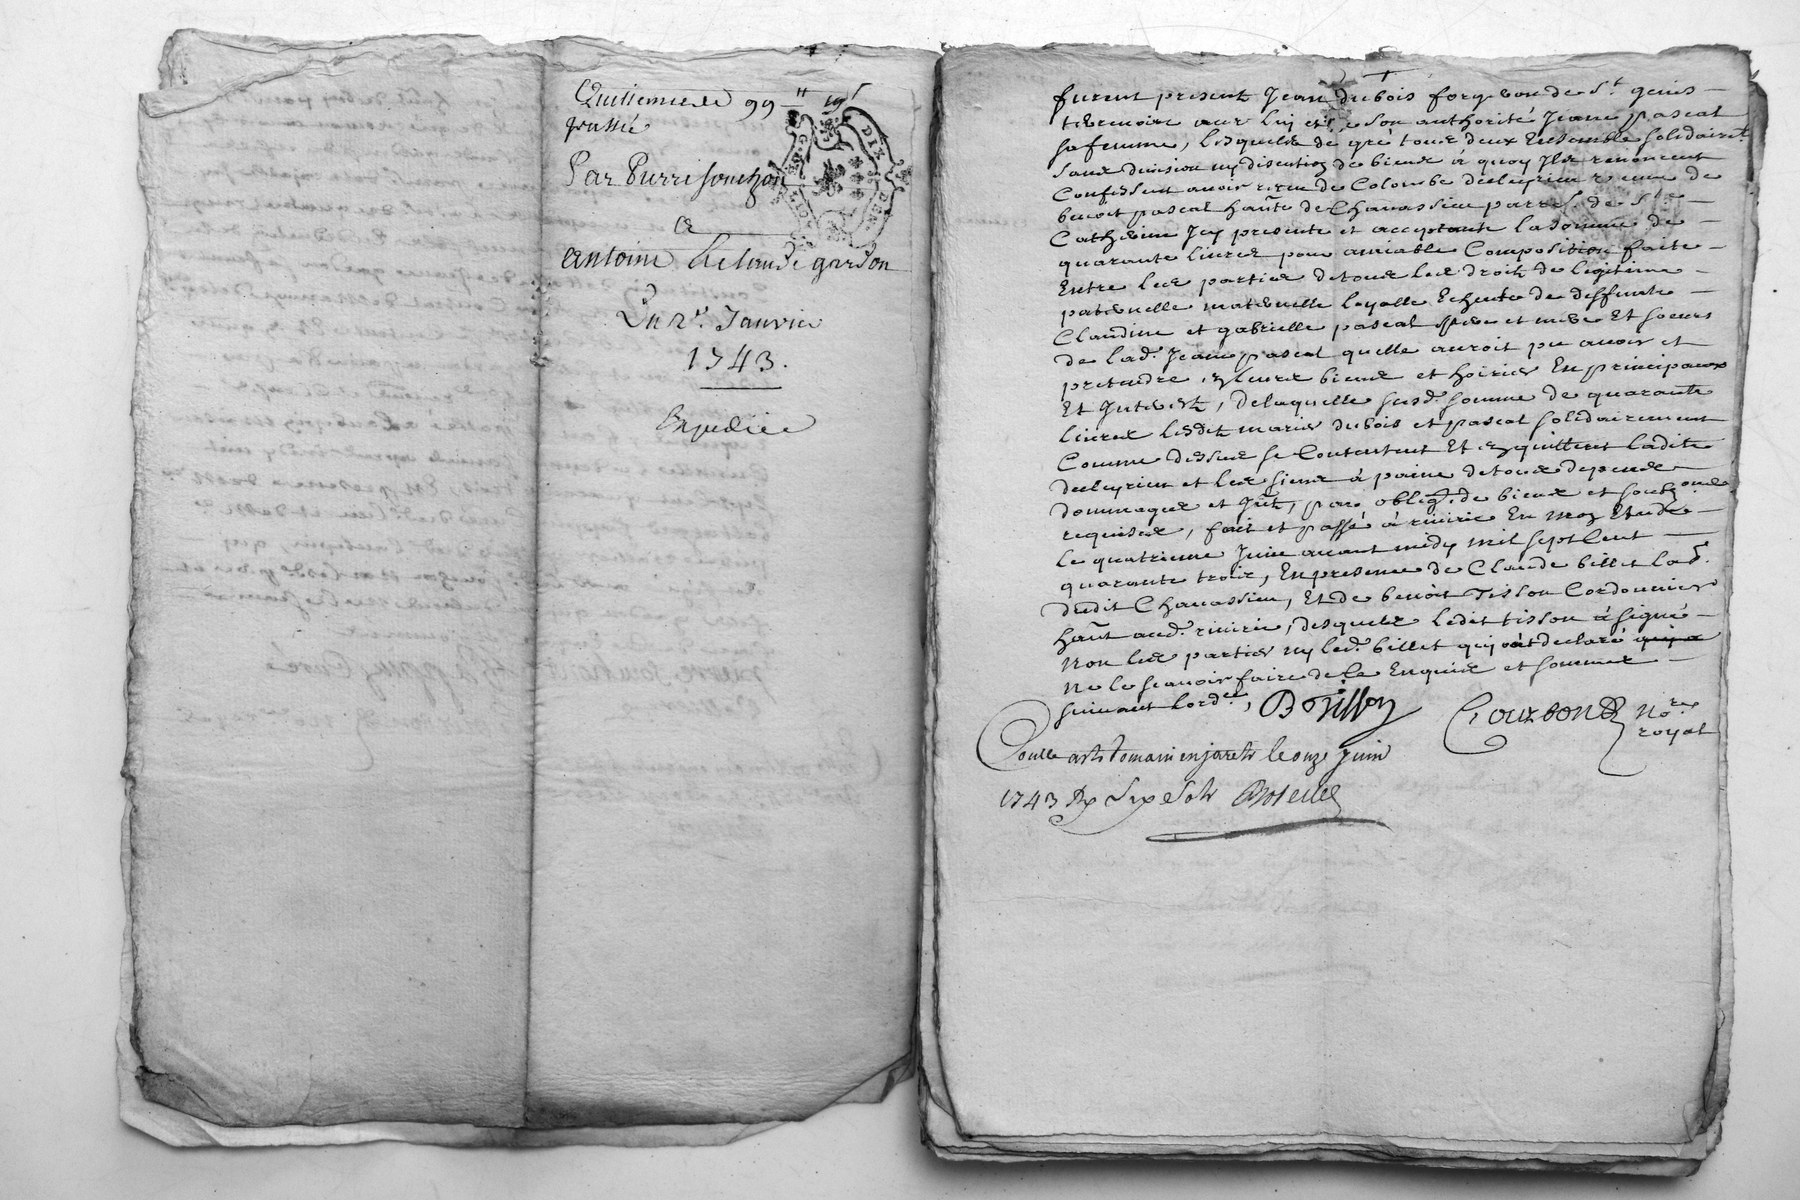 Quittance de 99 ᴴ 19ˢ
passée
Par Pierre Jonchon
a
antoine Relaude gardon
Du 2ᵉ. Janvier
1743.
Expediée
GEN
LION
DIX
DEN
furent present Jean dubois forgeron de S.t genis
terrenoire aux luy et de son authorité Jeanne pascal
sa femme, lesquels de gré tous deux Ensemble solidairet
sans division ny discution de biens à quoy Ils renoncent
Confessent avoir receu de Colombe deleyrieu veuve de
benoit pascal hant de Chavassieu parrse. de Ste
Catherine Icy presente et acceptante la somme de
quarante livres pour amiable Composition faite
Entre les parties de tous les droits de legitime
paternelle maternelle layalle Echeute de deffunts
Claudine et gabrielle pascal et mere Et soeurs
de lad. Jeanne pascal quelle auroit pu avoir et
pretendre es leurs biens et hoiries En principaux
Et Interests, de laquelle susd. somme de quarante
livres lesdits maries dubois et pascal solidairement
Comme dessus se Contentent Et en quittent ladite
deleyrieu et les siens à paine de tous depens
dommages et Ints, par oblig. de biens et soubzons
requises, fait et passé à rivirie En mon Etude
le quatrieme Juin avant midy mil sept Cent
quarante trois, En presence de Claude billet lab.r
dudit Chavassieu, Et de benoit Tisson Cordonnier
hant aud. rivirie, desquels ledit tisson à signé
non les parties ny led. billet qui ont declaré qui a
ne le scavoir faire de ce Enquis et sommes
suivant lord.ce, B Tisson Gourbond No.re
royal
Conllé a St Romain en jarets le onze Juin
1743 Rx Six Sols